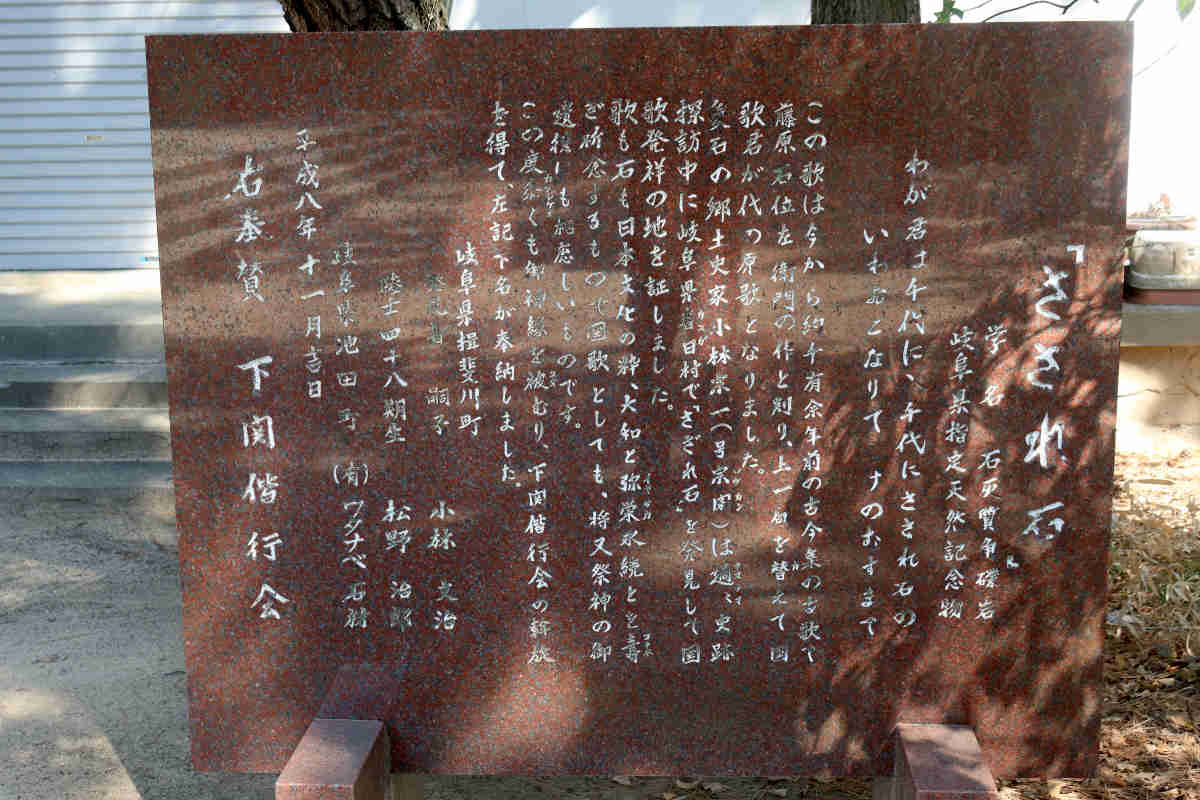 「さされ石」
学名 石灰質角礫岩
岐阜県指定天然記念物
わが君は千代に、千代にさされ石の
いわおとなりて コケのむすまで
この歌は今から約千有余年前の古今集の古歌で
藤原石位左衛門の作と判り、上一句を替えて国
歌君が代の原歌となりました。
愛石の郷土史家小林宗一(号宗閑)は適、史跡
探訪中に岐阜県春日村で「さざれ石」を発見して国
歌発祥の地を証しました。
歌も石も日本文化の粋、大和と弥栄永続とを寿
ぎ祈念するもので国歌としても、将又祭神の御
遺徳にも相應しいものです。
この度忝くも御神縁を被むり、下関偕行会の斡旋
を得て、左記下名が奉納しました。
岐阜県揖斐川町
発見者 嗣子 小林 文治
陸士四十八期生 松野 治郎
岐阜県池田町 (有)ワタナベ石材
平成八年十一月吉日
右奉賛 下関偕行会